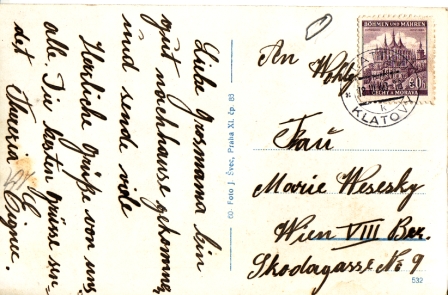 Liebe Grosmama bin
gut nachhause gekommen
und sende viele
Herzliche Grüße von uns
alle. Die besten Grüsse sen-
det Maria
60 - Foto J. Švec, Praha XI. čp. 88
An Wohlg.
Frau
Marie Wesesky
Wien VIII Bez.
Skodagasse No 9
532
BÖHMEN UND MÄHREN
ČECHY A MORAVA
KLATOVY